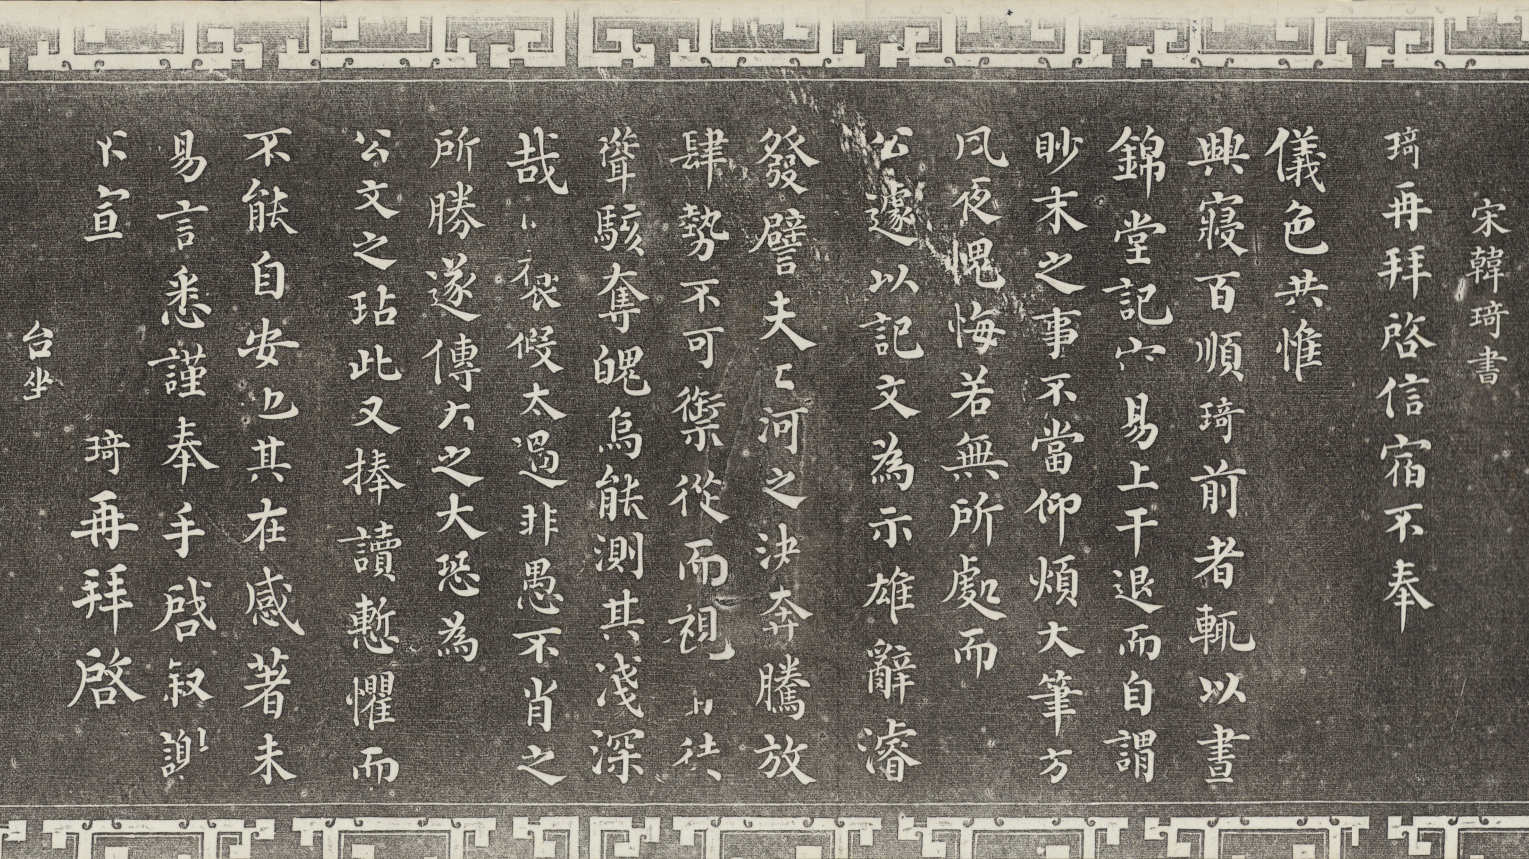 宋韓琦書
琦再拜啓信宿不奉
儀色共惟
興寢百順琦前者輒以晝
錦堂記易上干退而自謂
眇末之事不當仰煩大筆方
夙夜愧悔若無所處而
公遽以記文為示雄辭濬
發譬夫河之決奔騰放
肆勢不可禦從而視徒
聳駭奪魄烏能測其淺深
哉假太過非愚不肖之
所勝遂傳之大恐為
公文之玷此又捧讀慙懼而
不能自安也其在感著未
易言悉謹奉手啓叙謝
不宣 琦再拜啓
台坐